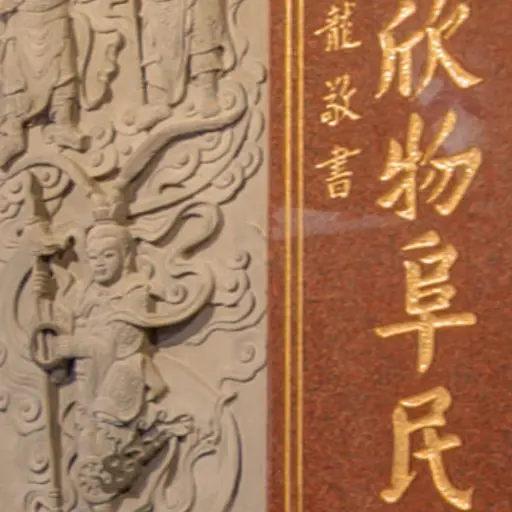 欣物阜民
龍敬書